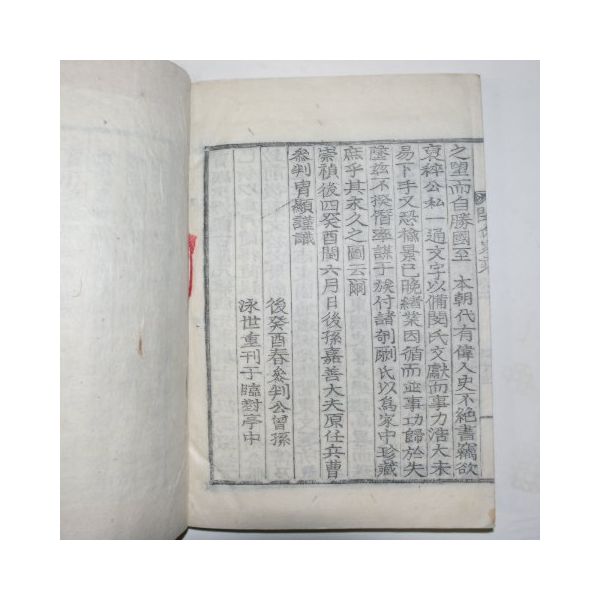 之望而自勝國至 本朝代有偉人史不絶書竊欲
裒稡公私一通文字以備閔氏文獻而事力浩大未
易下手又恐楡景已晚緖業因循而並事功歸於失
墜玆不揆僭率謀于族付諸剞劂氏以爲家中珍藏
庶乎其永久之圖云爾
崇禎後四癸酉閏六月日後孫嘉善大夫原任兵曹
參判冑顯謹識
後癸酉春參判公曾孫
泳世重刊于臨對亭中